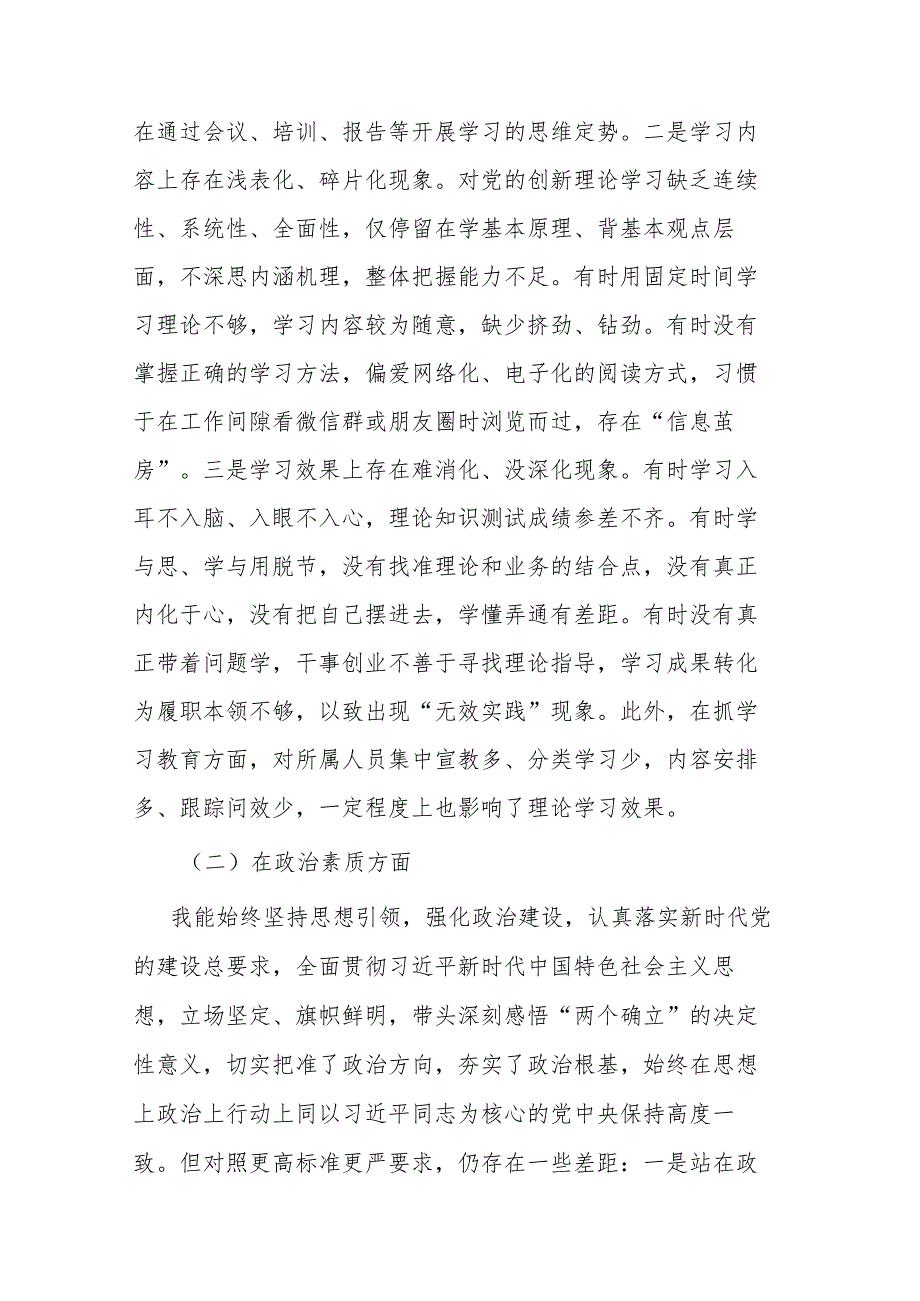 在通过会议、培训、报告等开展学习的思维定势。二是学习内
容上存在浅表化、碎片化现象。对党的创新理论学习缺乏连续
性、系统性、全面性，仅停留在学基本原理、背基本观点层
面，不深思内涵机理，整体把握能力不足。有时用固定时间学
习理论不够，学习内容较为随意，缺少挤劲、钻劲。有时没有
掌握正确的学习方法，偏爱网络化、电子化的阅读方式，习惯
于在工作间隙看微信群或朋友圈时浏览而过，存在“信息茧
房”。三是学习效果上存在难消化、没深化现象。有时学习入
耳不入脑、入眼不入心，理论知识测试成绩参差不齐。有时学
与思、学与用脱节，没有找准理论和业务的结合点，没有真正
内化于心，没有把自己摆进去，学懂弄通有差距。有时没有真
正带着问题学，干事创业不善于寻找理论指导，学习成果转化
为履职本领不够，以致出现“无效实践”现象。此外，在抓学
习教育方面，对所属人员集中宣教多、分类学习少，内容安排
多、跟踪问效少，一定程度上也影响了理论学习效果。
（二）在政治素质方面
我能始终坚持思想引领，强化政治建设，认真落实新时代党
的建设总要求，全面贯彻习近平新时代中国特色社会主义思
想，立场坚定、旗帜鲜明，带头深刻感悟“两个确立”的决定
性意义，切实把准了政治方向，夯实了政治根基，始终在思想
上政治上行动上同以习近平同志为核心的党中央保持高度一
致。但对照更高标准更严要求，仍存在一些差距：一是站在政